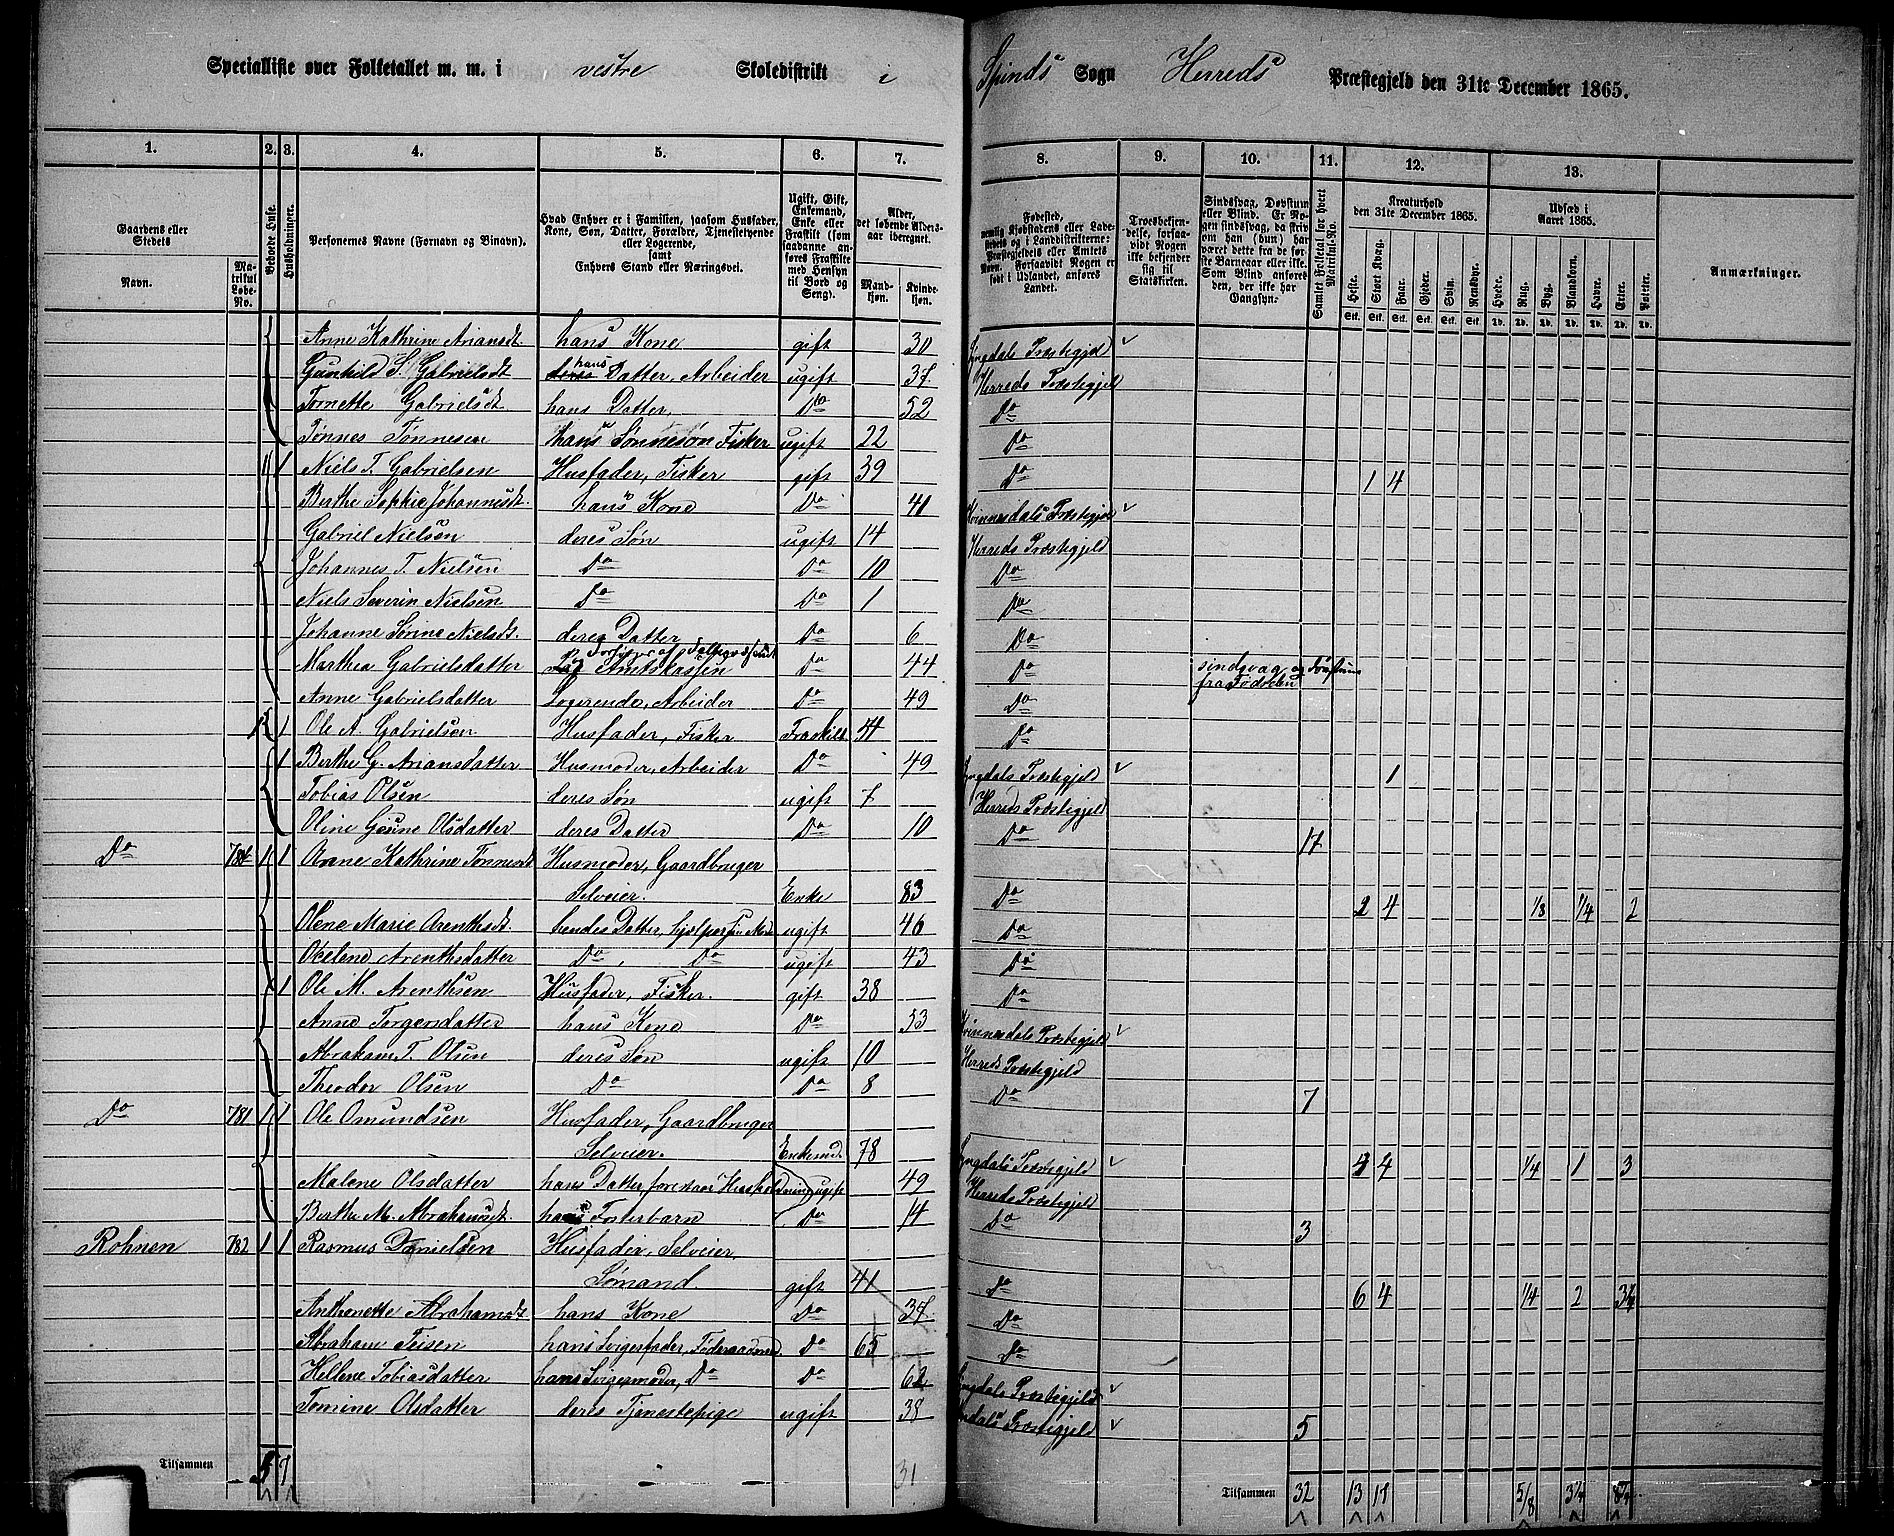 Speciallifte over Folketallet m. m. i vestre Skoledistrikt i Spinds Sogn Herreds Præstegjeld den 31te December 1865.
1. 2. 3. 4. 5. 6. 7. 8. 9. 10. 11. 12. 13.
Gaardens eller Stedets
Navn.
Matrikul Løbe-No.
Beboede Huse.
Husholdninger.
Personernes Navne (Fornavn og Binavn).
Hvad Enhver er i Familien, saasom Husfader, Kone, Søn, Datter, Forældre, Tjenestetyende eller Logerende,
samt
Enhvers Stand eller Næringsvei.
Ugift, Gift, Enkemand, Enke eller Fraskilt (som saadanne anføres Fraskilte med Hensyn til Bord og Seng).
Alder, det løbende Aldersaar iberegnet.
Mandkjøn. Kvindekjøn.
Fødested, nemlig Kjøbstadens eller Ladestedets og i Landdistrikterne: Præstegjeldets eller Amtets Navn. Forsaavidt Nogen er født i Udlandet, anføres Landet.
Troesbekjendelse, forsaavidt Nogen ikke bekjender sig til Statskirken.
Sindssvag, Døvstum eller Blind. Er Nogen sindssvag, da skriv om han (hun) har været dette fra de første Barneaar eller ikke. Som Blind anføres den, der ikke har Gangsyn.
Samlet Folketal for hvert Matrikul-No.
Kreaturhold den 31te December 1865.
Heste. Stort Kvæg. Faar. Gjeder. Svin. Rensdyr.
Udsæd i Aaret 1865.
Hvede. Rug. Byg. Blandkorn. Havre. Erter. Poteter.
Anmærkninger.
Anne Kathrine Ariansdt. hans Kone gift 30 Lyngdals Præstegjeld
Gunhild S. Gabrielsdt hans Datter, Arbeider ugift 37 Herreds Præstegjeld
Tornette Gabrielsdt. hans Datter, Do 52 Do
Tønnes Tønnesen hans Sønnesøn Fisker ugift 22 Do
1 1 Niels T. Gabrielsen Husfader, Fisker gift 39 Do 1 4
Berthe Sophie Johannesdt. hans Kone Do 41 Kvinnesdals Præstegjeld
Gabriel Nielsen deres Søn ugift 14 Herreds Præstegjeld
Johannes T. Nielsen Do Do 10 Do
Niels Severin Nielsen Do Do 1 Do
Johanne Sørine Nielsdt. deres Datter Do 6 Do
Marthea Gabrielsdatter Amtskassen Do 44 Do sindsvag og Døvstum fra Fødselen
Anne Gabrielsdatter Logerende, Arbeider Do 49 Do
1 Ole A. Gabrielsen Husfader, Fisker Fraskilt 54 Do
1 Berthe G. Ariansdatter Husmoder, Arbeider Do 49 Lyngdals Præstegjeld 1
Tobias Olsen deres Søn ugift 7 Herreds Præstegjeld
Oline Gesine Olsdatter deres Datter Do 10 Do 17
Do 780 1 1 Anne Kathrine Tønnesdt Husmoder, Gaardbruger
Selveier. Enke 83 Do 2 4 1/8 1/4 2
Olene Marie Arenthsdt. hendes Datter, hjelper ugift 46 Do
Oselene Arenthsdatter Do Do ugift 43 Do
1 Ole M. Arenthsen Husfader, Fisker. gift 38 Do
Anne Torgersdatter hans Kone Do 53 Kvinnesdals Præstegjeld
Abraham T. Olsen deres Søn ugift 10 Herreds Præstegjeld
Theodor Olsen Do Do 8 Do 7
Do 781 1 1 Ole Omundsen Husfader, Gaardbruger
Selveier. Enkemd. 78 Lyngdals Præstegjeld 4 4 1/4 1 3
Malene Olsdatter hans Datter, forestaar Husholdning ugift 49 Herreds Præstegjeld
Berthe M. Abrahamsdt. hans Fosterbarn Do 14 Do 3
Rohnen 782 1 1 Rasmus Danielsen Husfader, Selveier
Sømand gift 41 Do 6 4 1/4 2 3½
Anthonette Abrahamsdt hans Kone Do 37 Do
Abraham Teisen hans Svigerfader, Føderaadsmd. Do 65 Do
Hellene Tobiasdatter hans Svigermoder, Do Do 62 Lyngdals Præstegjeld
Tomine Olsdatter deres Tjenestepige ugift 38 Præstegjeld 5
Tilsammen 5 7 31 Tilsammen 32 13 17 5/8 3¼